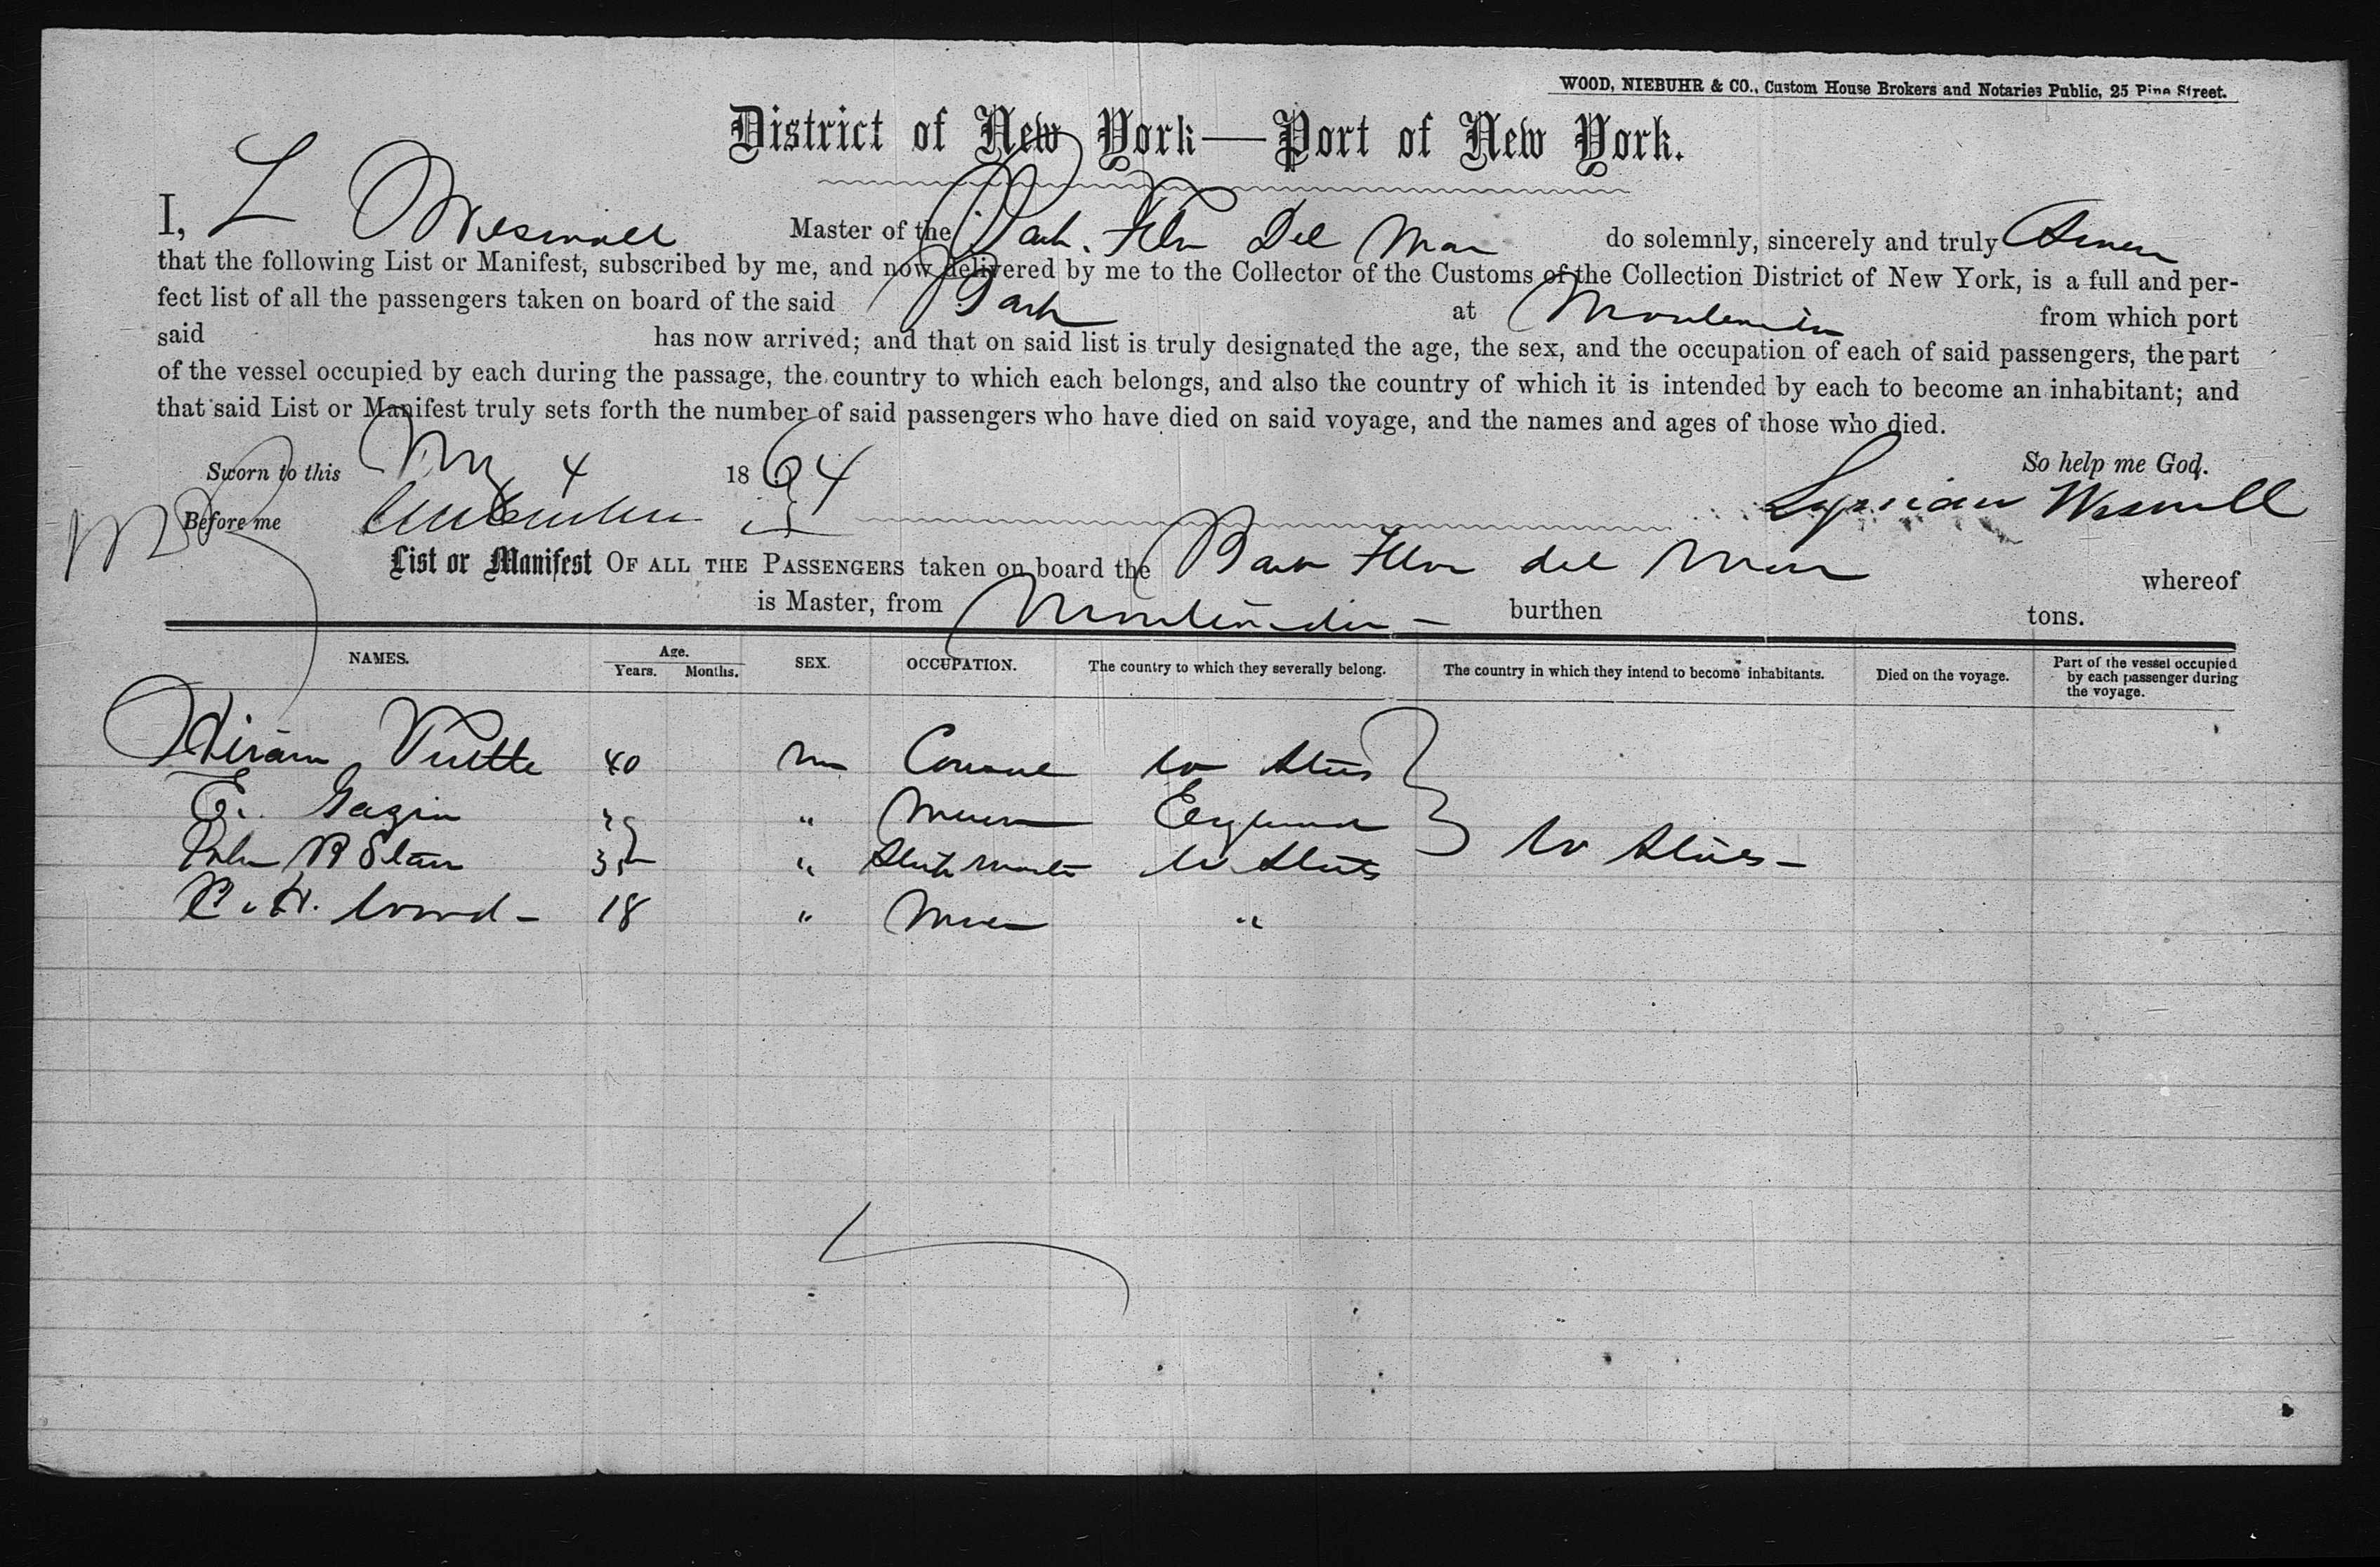 WOOD, NIEBUHR & CO., Custom House Brokers and Notaries Public, 25 Pine Street.
District of New York—Port of New York.
I, L Master of the Bark. Flor Del Mar do solemnly, sincerely and truly
that the following List or Manifest, subscribed by me, and now delivered by me to the Collector of the Customs of the Collection District of New York, is a full and per-
fect list of all the passengers taken on board of the said Bark at from which port
said has now arrived; and that on said list is truly designated the age, the sex, and the occupation of each of said passengers, the part
of the vessel occupied by each during the passage, the country to which each belongs, and also the country of which it is intended by each to become an inhabitant; and
that said List or Manifest truly sets forth the number of said passengers who have died on said voyage, and the names and ages of those who died.
Sworn to this 4 1864 So help me God.
Before me
List or Manifest OF ALL THE PASSENGERS taken on board the Bark Flor del Mar whereof
is Master, from burthen tons.
NAMES. Age. Years. Months. SEX. OCCUPATION. The country to which they severally belong. The country in which they intend to become inhabitants. Died on the voyage. Part of the vessel occupied by each passenger during the voyage.
Hiram Tuttle 40 m Consul U States
E. England
John 35 " Ship Master U States U States—
P. H. Wood - 18 " "